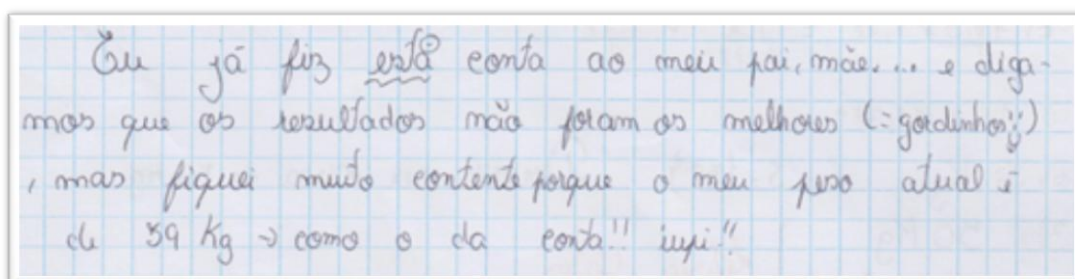 Eu já fiz está conta ao meu pai, mãe.... e diga-
mos que os resultados não foram os melhores (=gordinhos!!)
, mas fiquei muito contente porque o meu peso atual é
de 39 Kg → como o da conta!! iupi!!